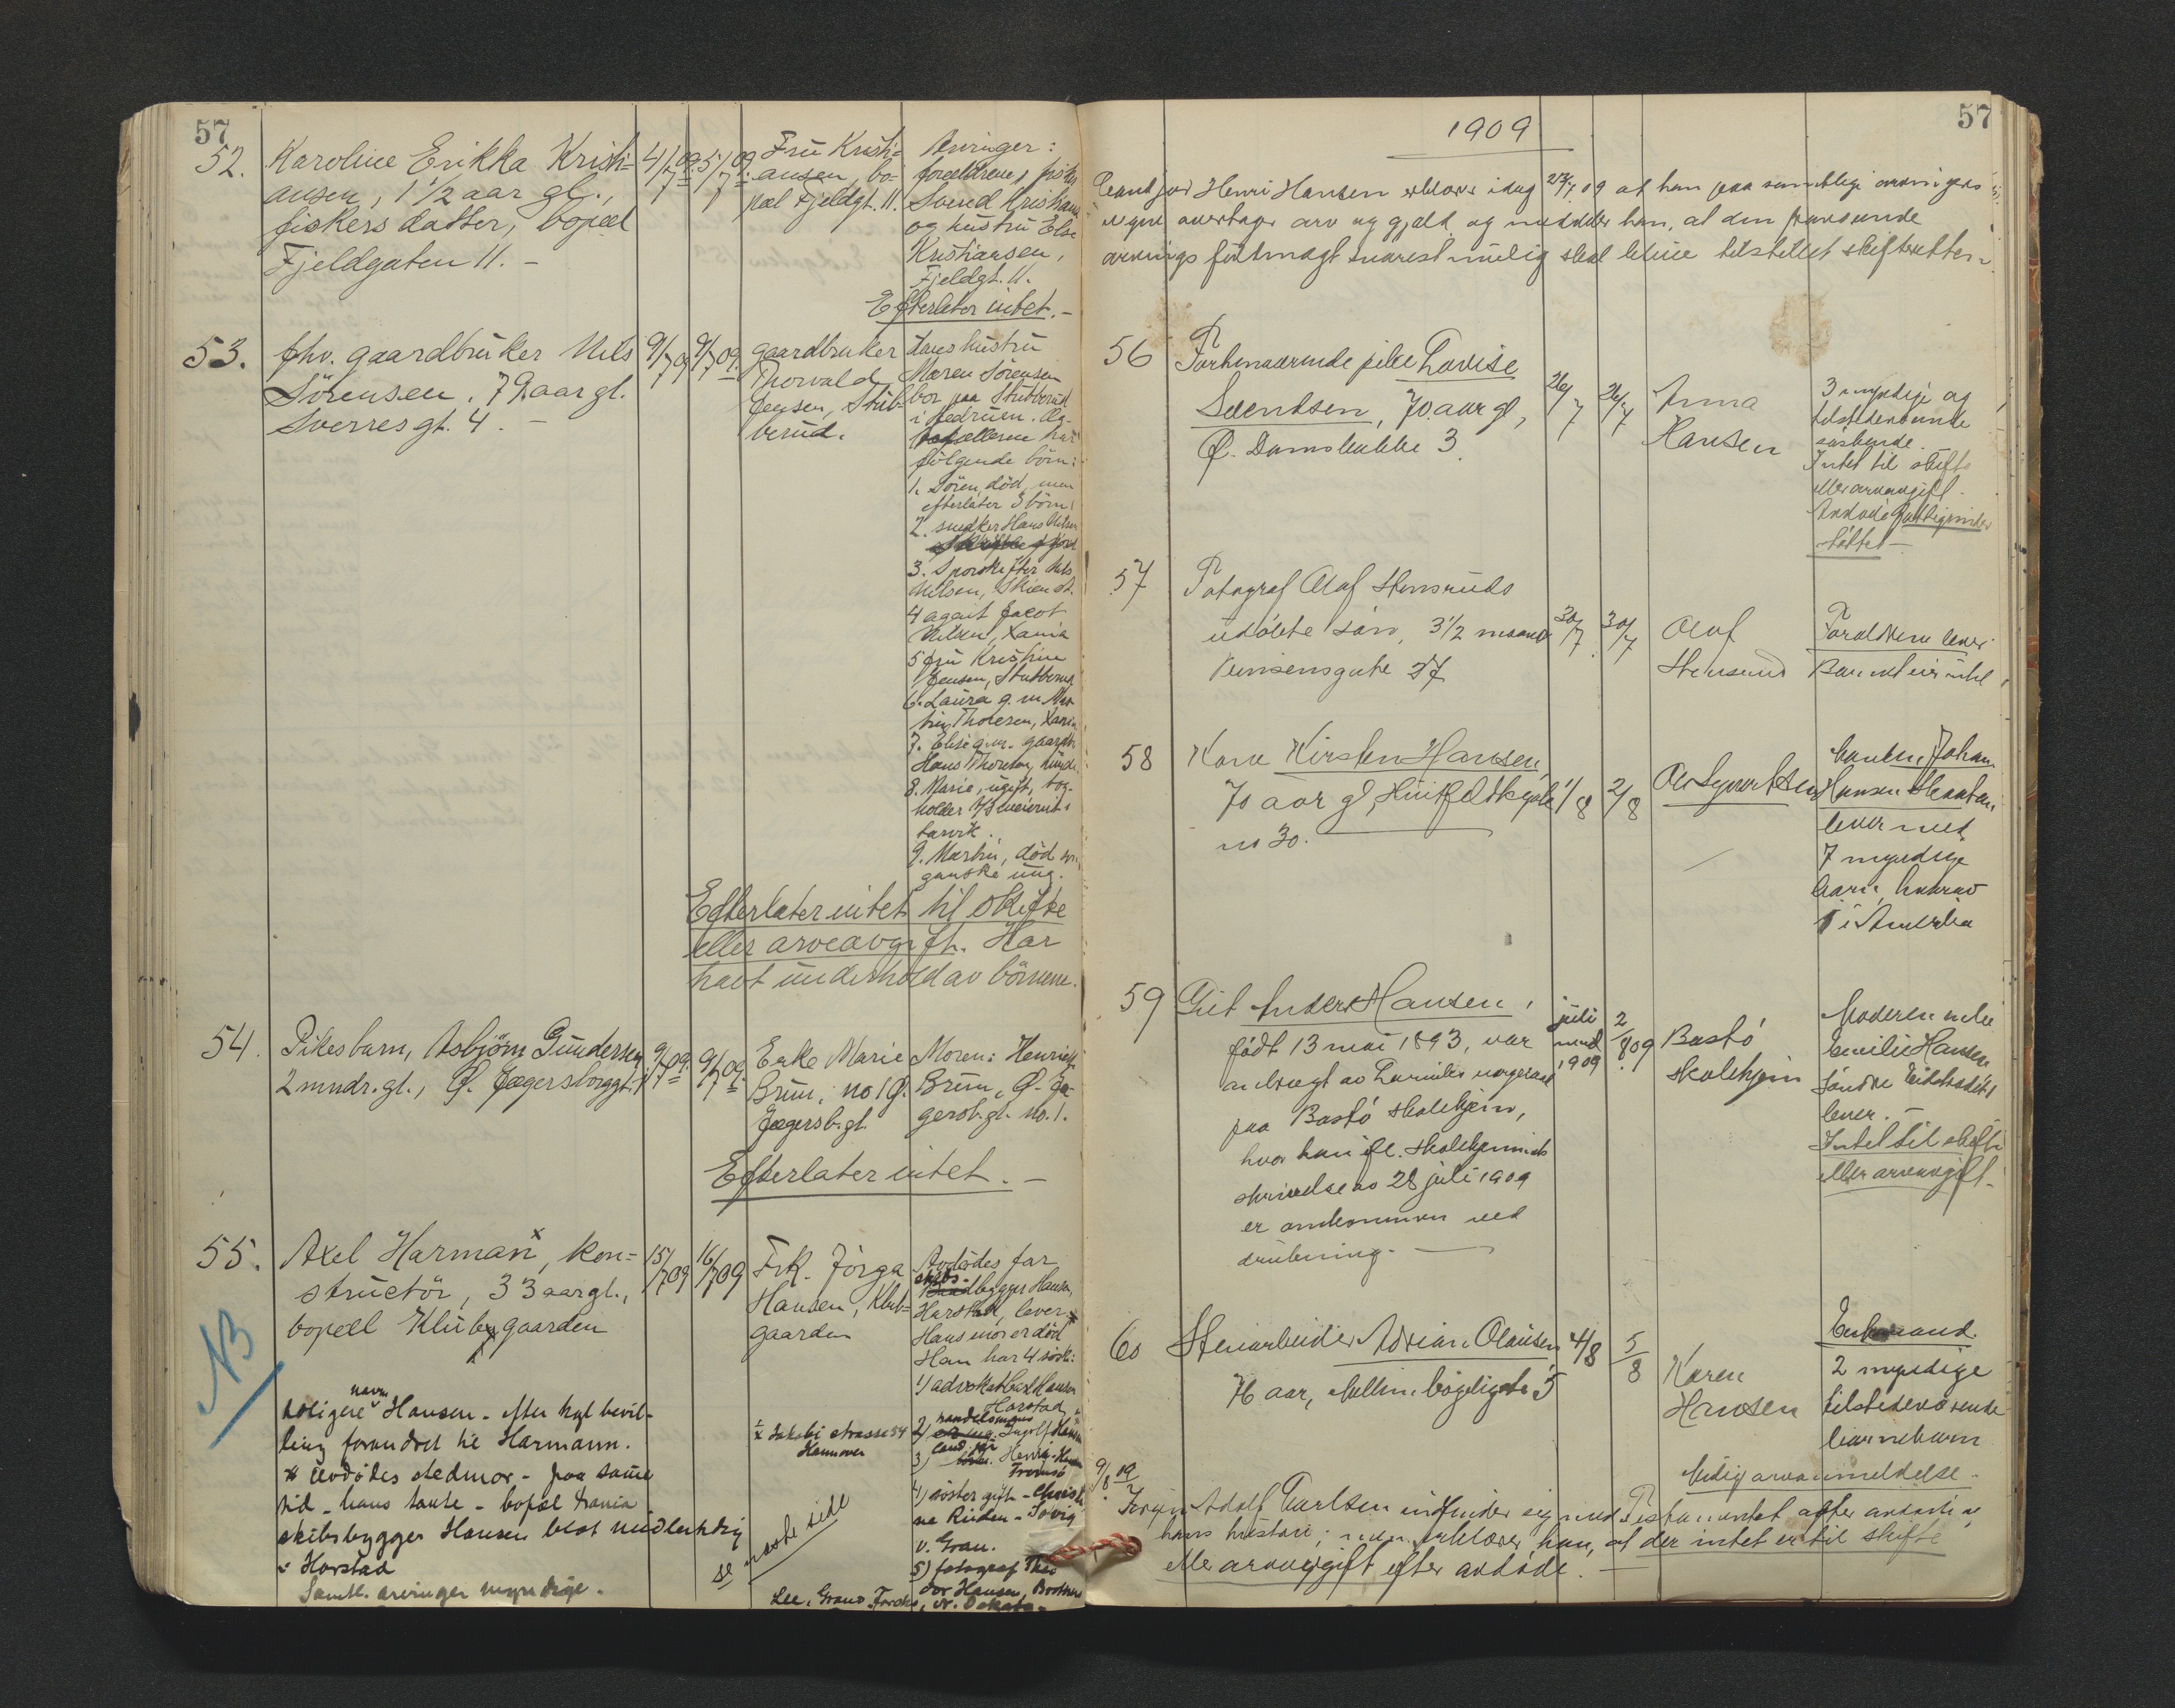 57
52. Karoline Erikka Kristi-
ansen, 1 1/2 aar gl.,
fiskers datter, bopæl
Fjeldgaten 11. –
4/7 09. 5/7 09.
Fru Kristi-
ansen, bo-
pæl Fjeldgt. 11.
Arvinger:
forældrene, fisker
Sverd Kristians
og hustru Else
Kristiansen,
Fjeldgt. 11.
Efterlater intet. –
53. fhv. gaardbruker Nils
Sörensen. 79 aar gl.
Sverresgt. 4. –
9/7 09 9/7 09.
gaardbruker
Thorvald
Jensen, Stub-
berud.
Hans hustru
Maren Sörensen
bor paa Stubberud
i Hedrum. Æg-
tefællerne har
følgende börn:
1. Sören, död, men
efterlater 3 börn
2. snedker Hans Nilsen
3. Sporskifter Nils
Nilsen, Skien st.
4 agent Jacob
Nilsen, Xania
5 fru Kristine
Jensen, Stubberud
6. Laura g. m. Mar-
tin Thoresen, Xania
7. Elise g.m. gaardbr
Hans Thoresen,
8. Marie, ugift, bog-
holder v/ meieriet i
Larvik.
9. Martin, död som
ganske ung.
Efterlater intet til skifte
eller arveavgift. Har
havt underhold av börnene.
54. Pikesbarn, Asbjörn Gundersen
2 mndr. gl., Ø. Jægersborggt. 1
9/7 09. 9/7 09.
Enke Marie
Brun, no 1 Ø.
Jægersb.gt.
Moren: Henriette
Brun, Ø. Jæ-
gersb.gt. no. 1.
Efterlater intet. –
55. Axel Harman x, kon-
structör, 33 aar gl.,
bopæl Klubgaarden
15/7 09 16/7 09
Frk. Jörga
Hansen, Klub-
gaarden
Avdödes far
skibs-
bygger Hansen,
Harstad, lever. x
Hans mor er död
Han har 4 sösk:
1) advokat Carl Hansen
Harstad
handelsmand
2) Ingolf Hansen
cand. jur
3) Henry Hansen
Tromsö
4) söster gift – Christi
ne Rüden – Jövig
v. Gran.
5) fotograf Theo
dor Hansen,
Lee, Grand Forche, N. Dakota –
NB
navn
tidligere Hansen – efter kgl bevil-
ling forandret til Harmann.
x avdödes stedmor – paa samme
tid – hans tante – bopæl Xania
skibsbygger Hansen blot midlertidig
i Harstad
Samtl. arvinger myndige.
x Jakobi strasse 54
Hannover
se næste side
57
1909
Cand jur Henri Hansen erklærer idag 27/7 09 at han paa samtlige arvingers
vegne overtager arv og gjæld og meddeler han, at den
arvings fuldmagt snarest mulig skal blive tilstillet skifteretten.
56 Forhenværende pike Lovise
Svendsen, 70 aar gl,
Ø. Damsbakke 3.
26/7 26/7
Anna
Hansen
3 myndige og
tilstedeværende
söskende.
Intet til skifte
eller arveavgift.
Avdöde fattigunder
stöttet –
57 Fotograf Olaf Stensruds
udöbte sön, 3 1/2 maaned
gate 27
30/7 30/7
Olaf
Stensrud
Forældrene lever.
Barnet eier intet
58 Kone Kirsten Hansen,
70 aar gl, Huitfeldtsgate
no 30.
1/8 2/8
Johan
Hansen
lever med
7 myndige
barn, hvorav
1 i Amerika
59 Gut Anders Hansen,
födt 13 mai 1893, var
anbragt av Larviks vergeraad
paa Bastö skolehjem,
hvor han ifl. skolehjemmets
skrivelse av 28 juli 1909
er omkommen ved
drukning. –
juli
mnd
1909
2/8 09
Bastö
skolehjem
Moderen enke
Emilie Hansen
Söndre
lever. –
Intet til skifte
eller arveavgift –
60 Stenarbeider Adrian Olausen
76 aar, Mellem bögeligate 5
4/8 5/8
Karen
Hansen
Enkemand.
2 myndige
tilstedeværende
barnebarn
Uidig arveanmeldelse.
9/8 09
Adolf Carlsen indfinder sig med Testamentet efter avdöde og
hans hustru; erklærer han, at der intet er til skifte
eller arveavgift efter avdöde. –